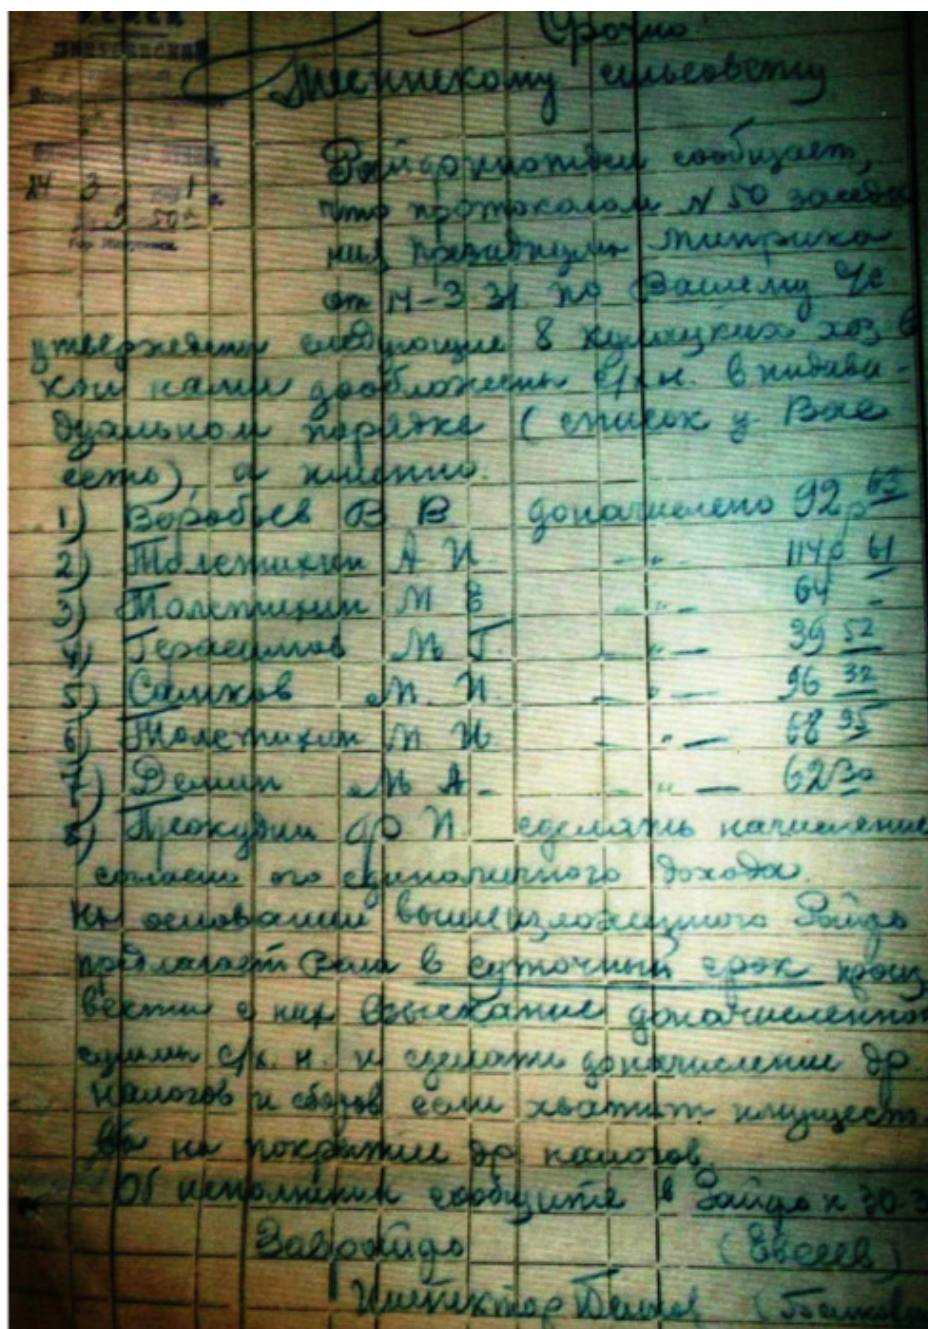 Срочно.
сельсовету
24 3 1 г.
сообщает,
что протоколом N 50 заседа
ния президиума
от 14-3 31 по Вашему с/с
утверждены следующие 8 кулацких хоз в
кои нами дообложены с/х н. в индиви-
дуальном порядке (список у Вас
есть), а именно.
1) Воробьев В В доначислено 92 р 63
2) Толстихин А И —"— 114 р 61
3) Толстихин М Е —"— 64 –
4) Герасимов М Г. —"— 39 52
5) М. И. —"— 96 32
6) Толстихин М И —"— 68 95
7) Демин М А. —"— 62 30
8) Прокудин Ф И сделать начисление
согласно его единоличного дохода.
На основании вышеизложенного Райфо
предлагает Вам в суточный срок произ
вести с них взыскание доначисленной
суммы с/х. н. и сделать доначисление др.
налогов и сборов если хватит имущест-
ва на покрытие др налогов.
Об исполнении сообщите в Райфо к 30-3
Заврайфо (Евсеев)
Инспектор